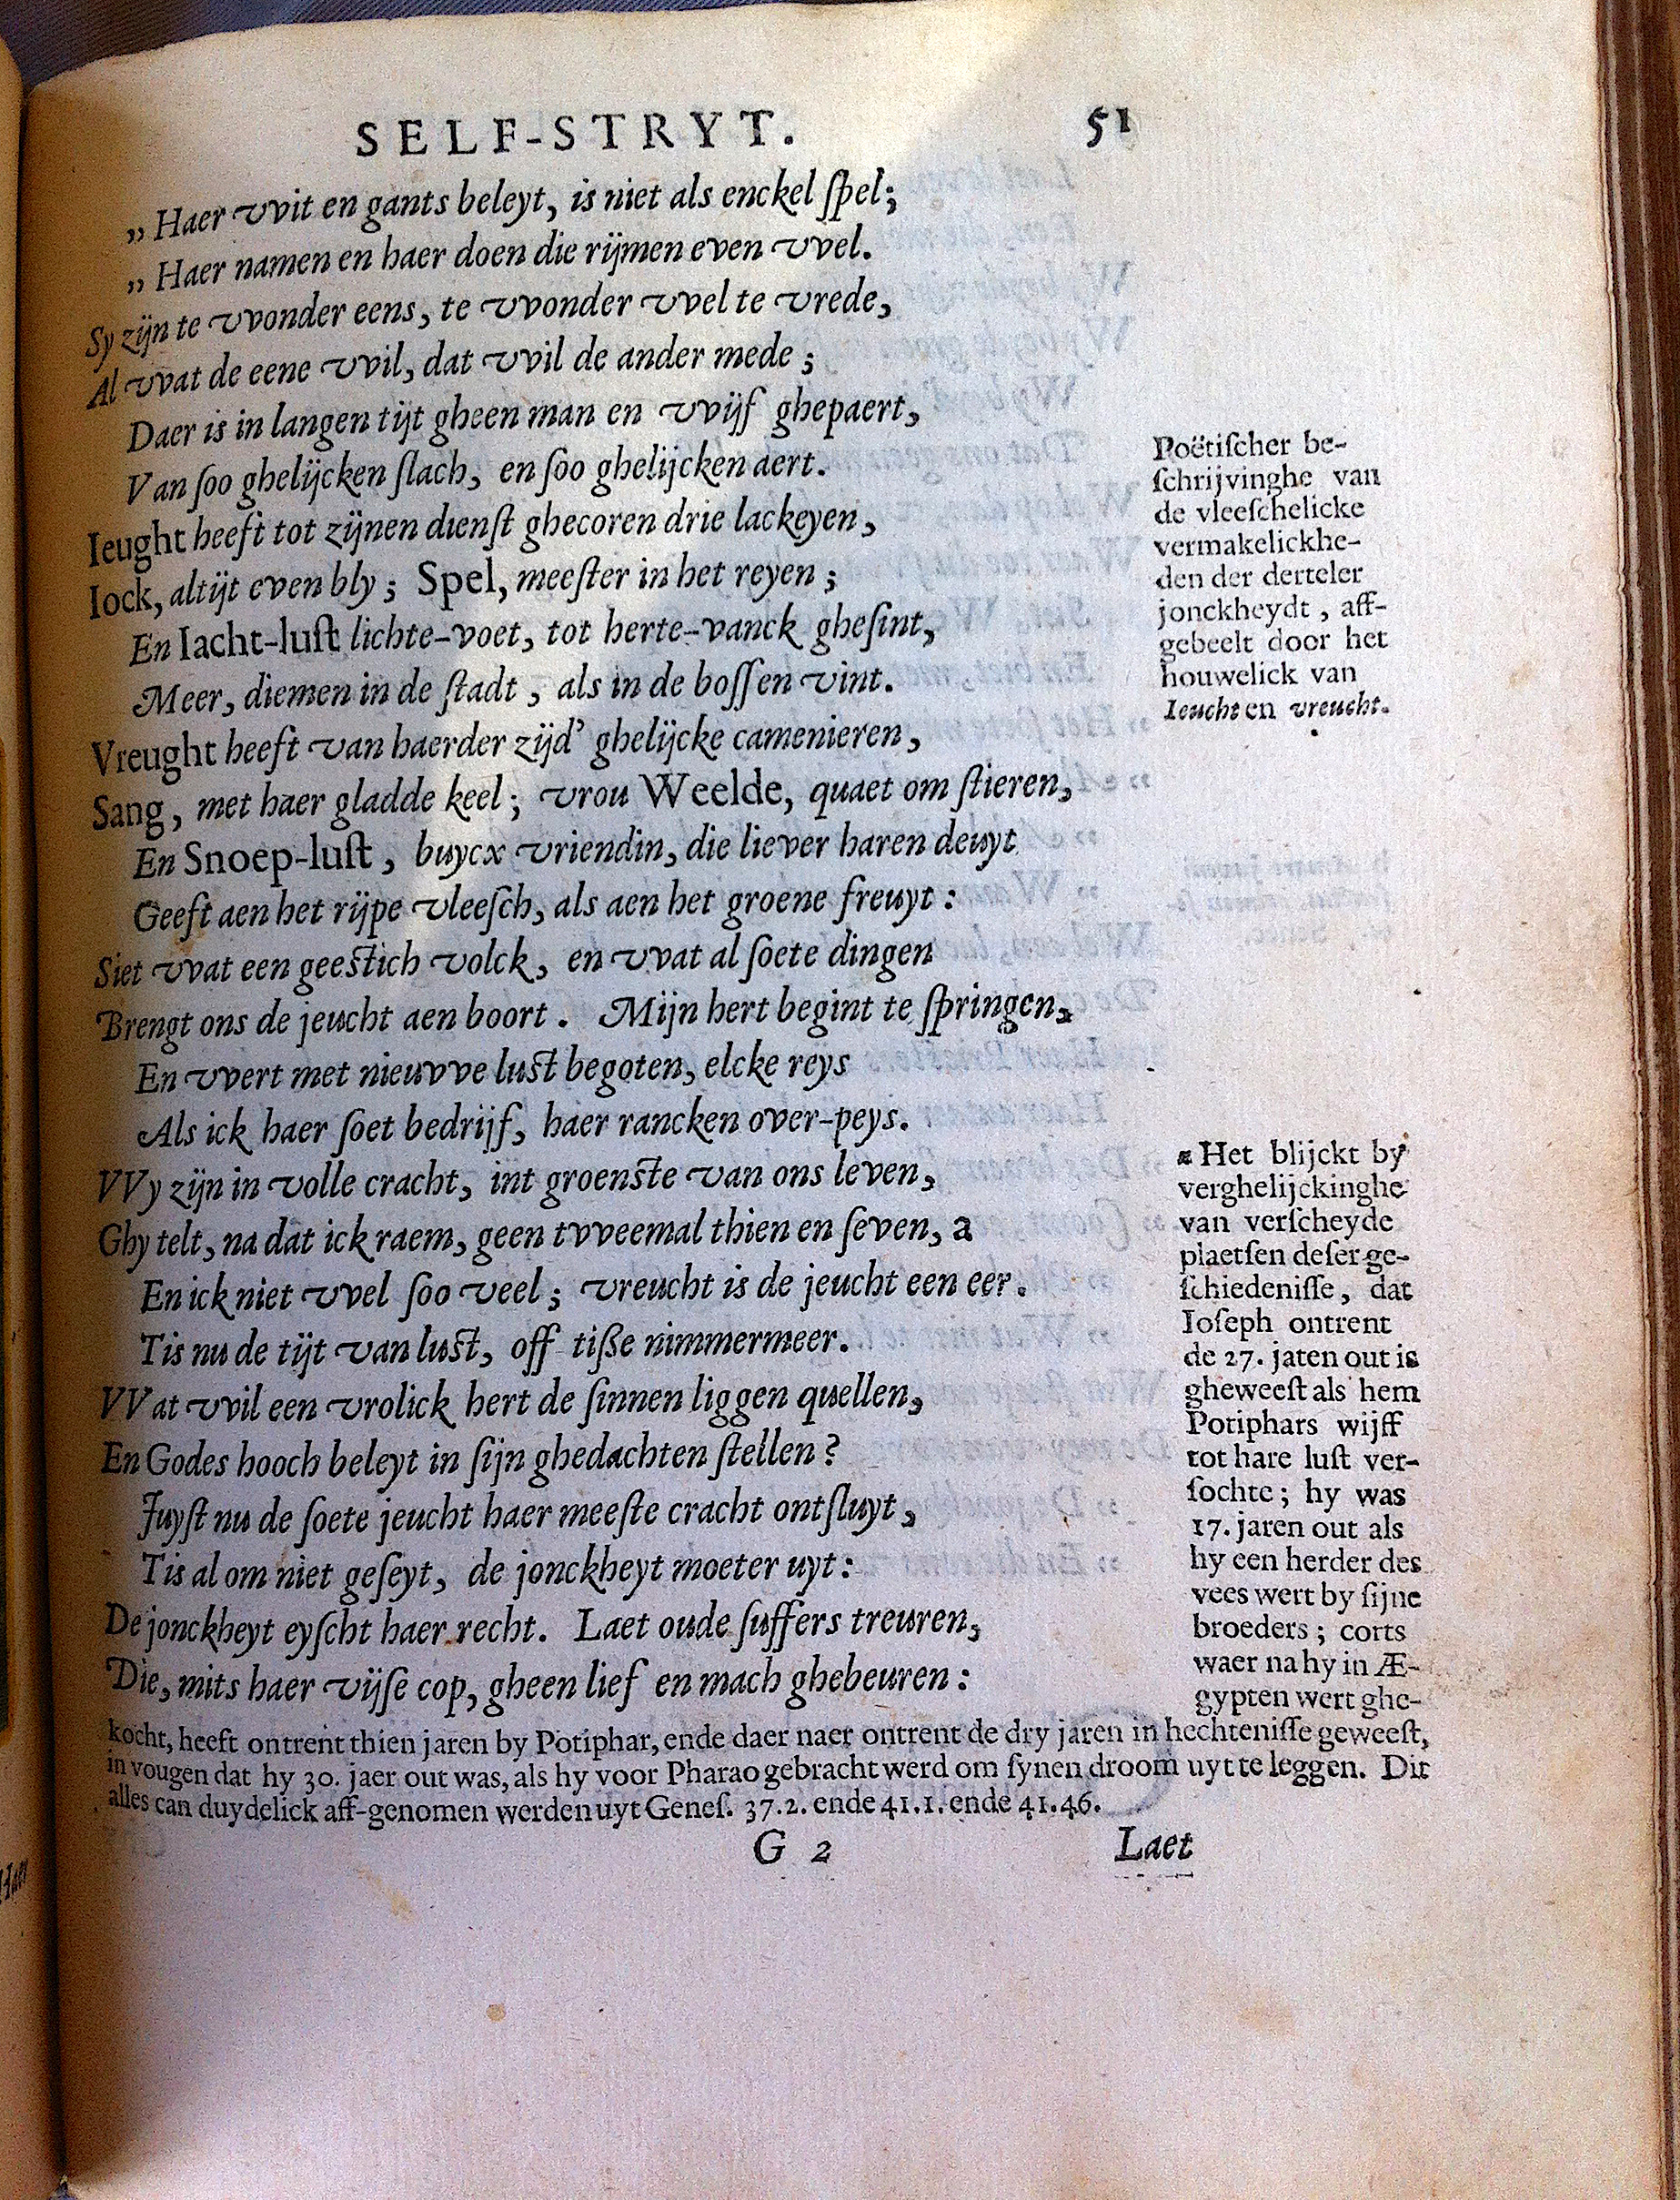 SELF-STRYT. 51
„ Haer vvit en gants beleyt, is niet als enckel ſpel;
„ Haer namen en haer doen die rijmen even vvel.
Sy zijn te vvonder eens, te vvonder vvel te vrede,
Al vvat de eene vvil, dat vvil de ander mede ;
Daer is in langen tijt gheen man en vvijf ghepaert,
Van ſoo ghelijcken ſlach, en ſoo ghelijcken aert.
Ieught heeft tot zijnen dienſt ghecoren drie lackeyen,
Iock, altijt even bly ; Spel, meeſter in het reyen ;
En Iacht-luſt lichte-voet, tot herte-vanck gheſint,
Meer, diemen in de ſtadt , als in de boſſen vint.
Vreught heeft van haerder zijd' ghelijcke camenieren,
Sang, met haer gladde keel ; vrou Weelde, quaet om ſtieren,
En Snoep-luſt, buycx vriendin, die liever haren deuyt
Geeft aen het rijpe vleeſch, als aen het groene freuyt :
Siet vvat een geestich volck, en vvat al ſoete dingen
Brengt ons de jeucht aen boort. Mijn hert begint te ſpringen,
En vvert met nieuvve lust begoten, elcke reys
Als ick haer ſoet bedrijf, haer rancken over-peys.
VVy zijn in volle cracht, int groenste van ons leven,
Ghy telt, na dat ick raem, geen tvveemal thien en ſeven, a
En ick niet vvel ſoo veel ; vreucht is de jeucht een eer.
Tis nu de tijt van lust, off tiſze nimmermeer.
VVat vvil een vrolick hert de ſinnen liggen quellen,
En Godes hooch beleyt in ſijn ghedachten ſtellen ?
Juyſt nu de ſoete jeucht haer meeſte cracht ontſluyt,
Tis al om niet geſeyt, de jonckheyt moeter uyt :
De jonckheyt eyſcht haer recht. Laet oude ſuffers treuren,
Die, mits haer vijſe cop, gheen lief en mach ghebeuren :
Poëtiſcher be-
ſchrijvinghe van
de vleeſchelicke
vermakelickhe-
den der derteler
jonckheydt , aff-
gebeelt door het
houwelick van
Ieucht en vreucht.
a Het blijckt by
verghelijckinghe
van verſcheyde
plaetſen deſer ge-
ſchiedeniſſe, dat
Ioſeph ontrent
de 27. jaten out is
gheweeſt als hem
Potiphars wijff
tot hare luſt ver-
ſochte ; hy was
17. jaren out als
hy een herder des
vees wert by ſijne
broeders ; corts
waer na hy in Æ-
gypten wert ghe-
kocht, heeft ontrent thien jaren by Potiphar, ende daer naer ontrent de dry jaren in hechteniſſe geweeſt,
in vougen dat hy 30. jaer out was, als hy voor Pharao gebracht werd om ſynen droom uyt te leggen. Dit
alles can duydelick aff-genomen werden uyt Geneſ. 37.2. ende 41.1. ende 41.46.
G 2 Laet